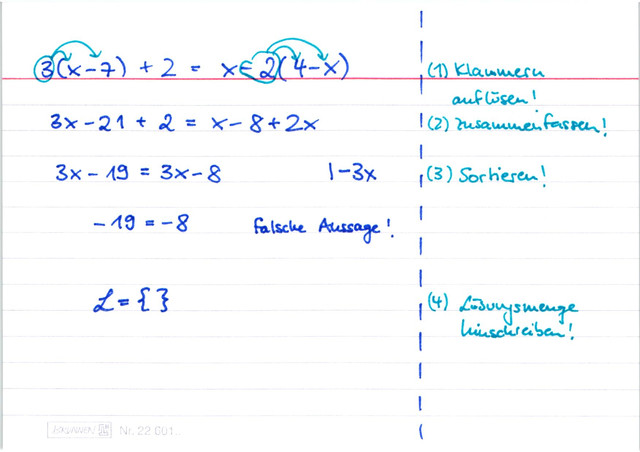 3(x-7) + 2 = x-2(4-x)
(1) Klammern
auflösen!
3x-21+2 = x-8+2x
(2) Zusammenfassen!
3x-19 = 3x-8 |-3x
(3) Sortieren!
-19 = -8 falsche Aussage!
L = { }
(4) Lösungsmenge
hinschreiben!
BRUNNEN Nr. 22 601